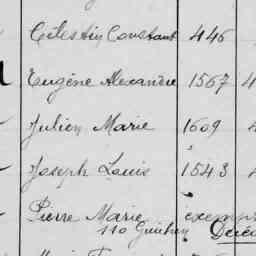 Célestin Constant 446
Eugène Alexandre 1567 4
Julien Marie 1609
Joseph Louis 1543 4
Pierre Marie exempt
110